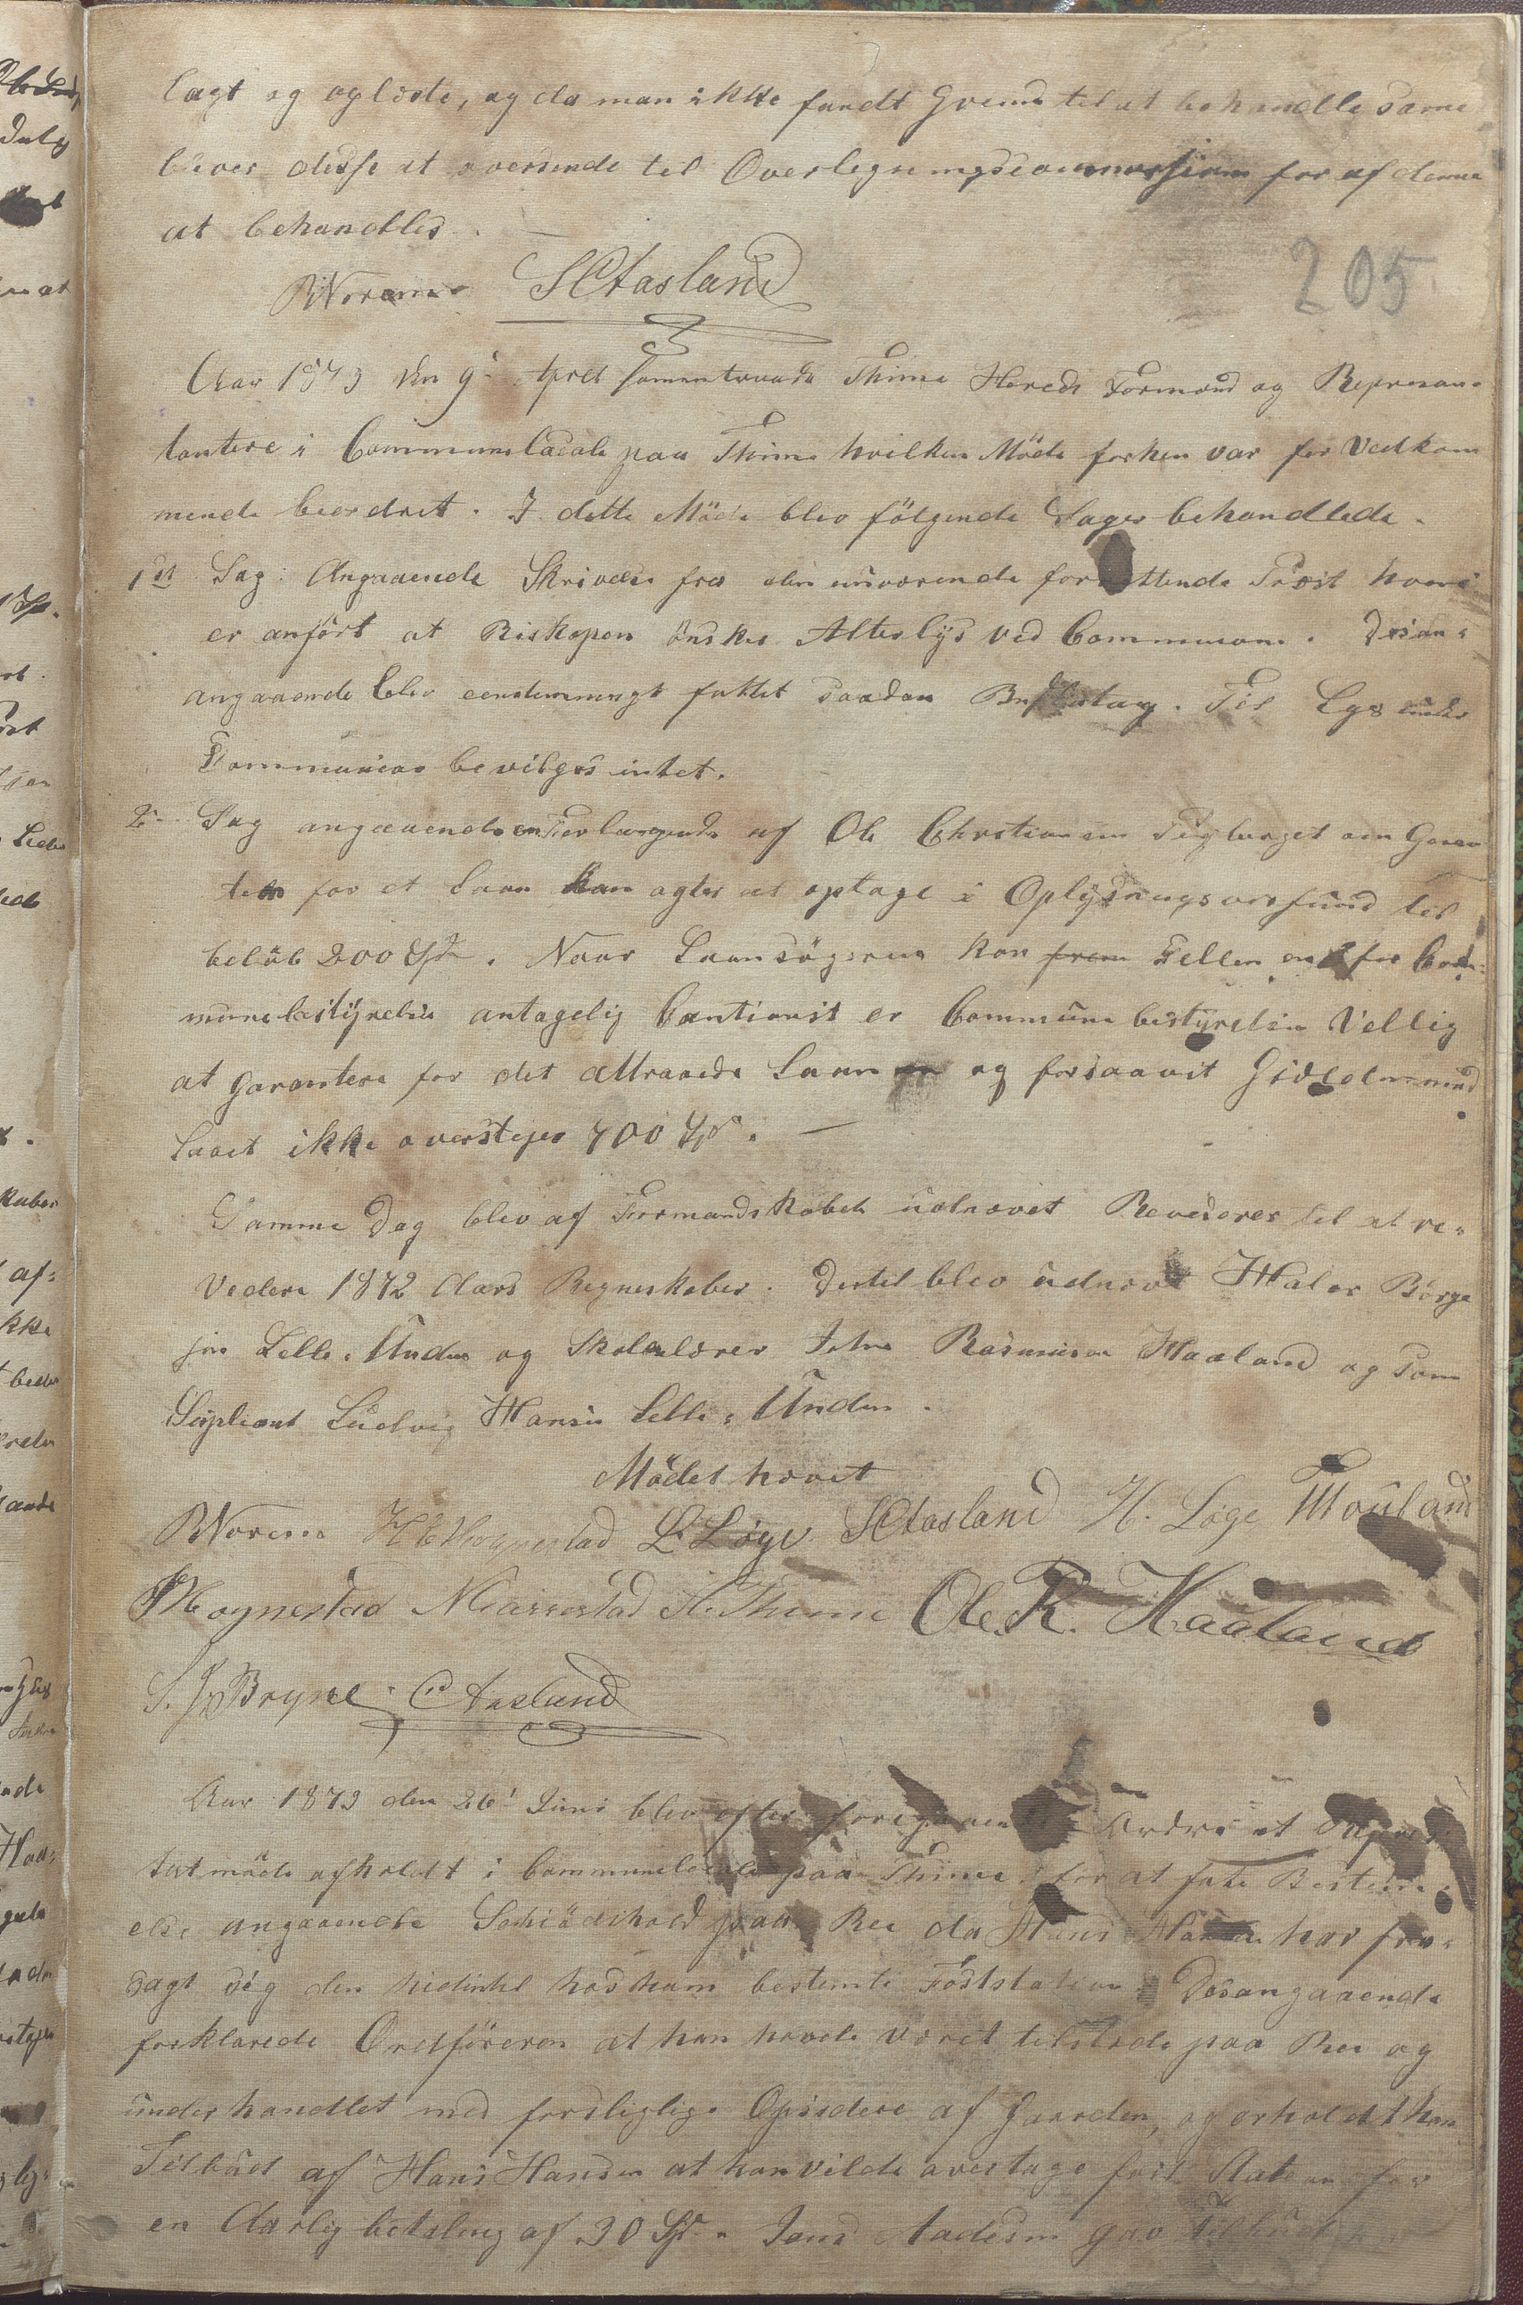 lagt og oglæste, og da man ikke fandt Grund til at behandle same
blever disse at oversende til Overlegningscommissionen for af denne
at behandles.
205
B Norem S C Aasland
Aar 1873 den 9de April sammentraade Thime Hereds Formænd og Represan-
tantere i Communelocale paa Thime hvilken Möde forhen var for Vedkom
mende beordret. I dette Möde blev fölgende Sager behandlede.
1st Sag: Angaaende Skrivelse fra den nuværende forrettende Præst hvori
er anfört at Biskopen önsker Alterlÿs ved Communion. Desan-
angaaende blev eenstemmigt fattet saadan Besslutning. Til Lys under
Communion beviliges intet.
2. Sag angaaende en Forlangende af Ole Christiansen Teglverget om Garan
tie for et Laan han agter at optage i Oplÿsningsvæsfund til
belöb 200 Spd. Naar Laansögeren kan frem stellen en for Com-
munebestÿrelsen antagelig Cautionist er Communebestÿrelsen Vellig
at garantere for det attraaede Laan og forsaavit Gieldenmed
Laaet ikke overstiger 700 Spd. —
Samme Dag blev af Formandskabet udnævnt Revisorer til at re-
vedere 1872 Aars Regneskaber. Dertil blev udnævt Maler Börge
sen Lelle-Undem og Skolelærer John Rasmusen Haaland og som
Supleant Ludvig Hansen Lelle-Undem.
Mödet hævet
B Norem H E Hognestad L Löge S C Aasland H. Loge T Houland
J Hognestad N Garrestad A. Thime Ole. R. Haaland
S. J. Bryne C Aasland
Aar 1873 den 26' Juni blev efter foregaaende Ordre et Represen
tatmöde afholdt i Communelocale paa Thime for at fate Bestem-
else angaaende Schiödshold paa Ree da Hans Hansen har fra-
sagt sig den hidintil hos ham bestemte Poststation. Desangaaende
forklarede Ordföreren at han havde været tilstede paa Ree og
underhandlet med forsligligge Opsidere af Gaarden, og erholdt han
Tilbud af Hans Hansen at han vilde overtage fast Station for
en Aarlig betaling af 30 Spd. Jens Aadesen gav Tilbud